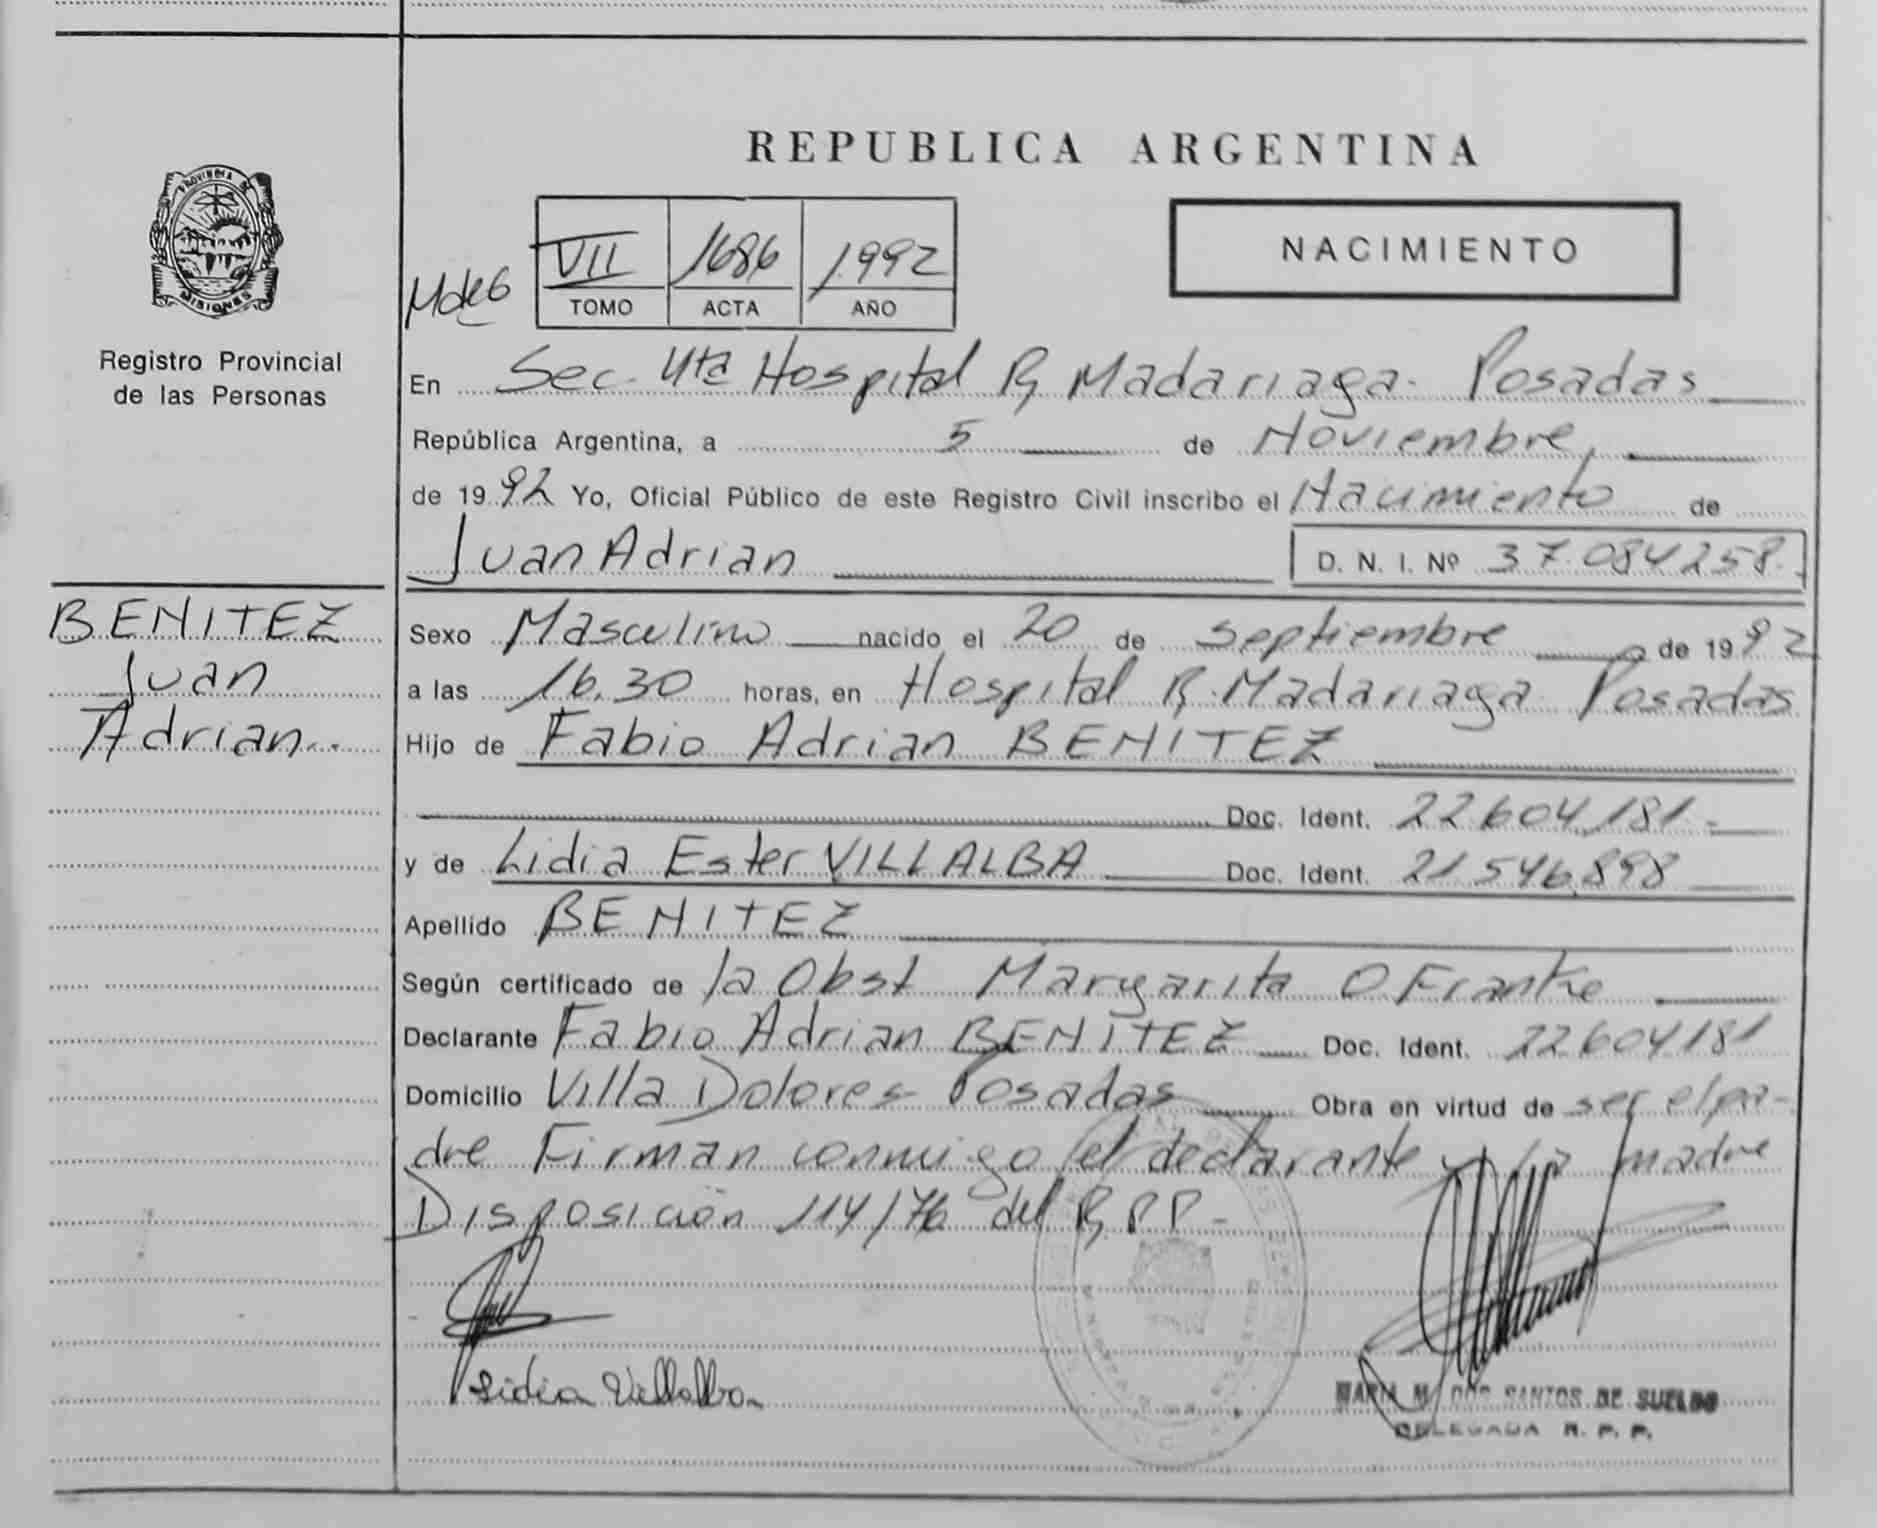 REPUBLICA ARGENTINA
PROVINCIA DE
MISIONES
Registro Provincial
de las Personas
VII 1686 1992
TOMO ACTA AÑO
NACIMIENTO
En Sec. 4ta Hospital R Madariaga. Posadas
República Argentina, a 5 de Noviembre,
de 1992 Yo, Oficial Público de este Registro Civil inscribo el Nacimiento de
Juan Adrian D. N. I. Nº 37.084258.
BENITEZ
Juan
Adrian..
Sexo Masculino nacido el 20 de septiembre de 1992
a las 16.30 horas, en Hospital R. Madariaga Posadas
Hijo de Fabio Adrian BENITEZ
Doc. Ident. 22.604.181.-
y de Lidia Ester VILLALBA Doc. Ident. 21.546.898
Apellido BENITEZ
Según certificado de la Obst Margarita O Franke
Declarante Fabio Adrian BENITEZ Doc. Ident. 22604181
Domicilio Villa Dolores- Posadas Obra en virtud de ser el pa-
dre Firman conmigo el declarante y la madre
Disposición 114/76 del R P P.-
Lidia Villalba
MARIA M. DOS SANTOS DE SUELDO
DELEGADA R. P. P.